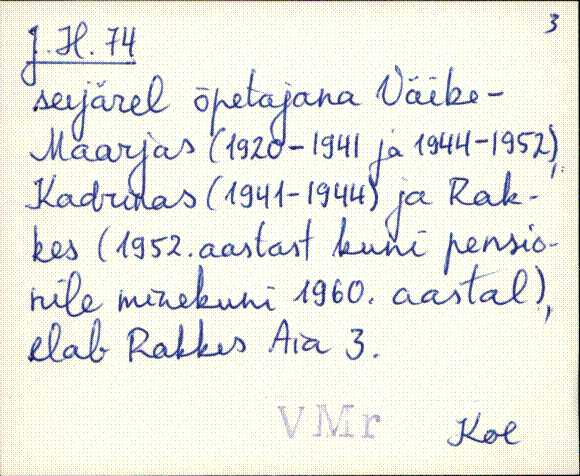 3
J. H. 74
seejärel õpetajana Väike-
Maarjas (1920-1941 ja 1944-1952),
Kadrinas (1941-1944) ja Rak-
kes (1952. aastast kuni pensio-
nile minekuni 1960. aastal),
elab Rakkes Aia 3.
VMr
Koe